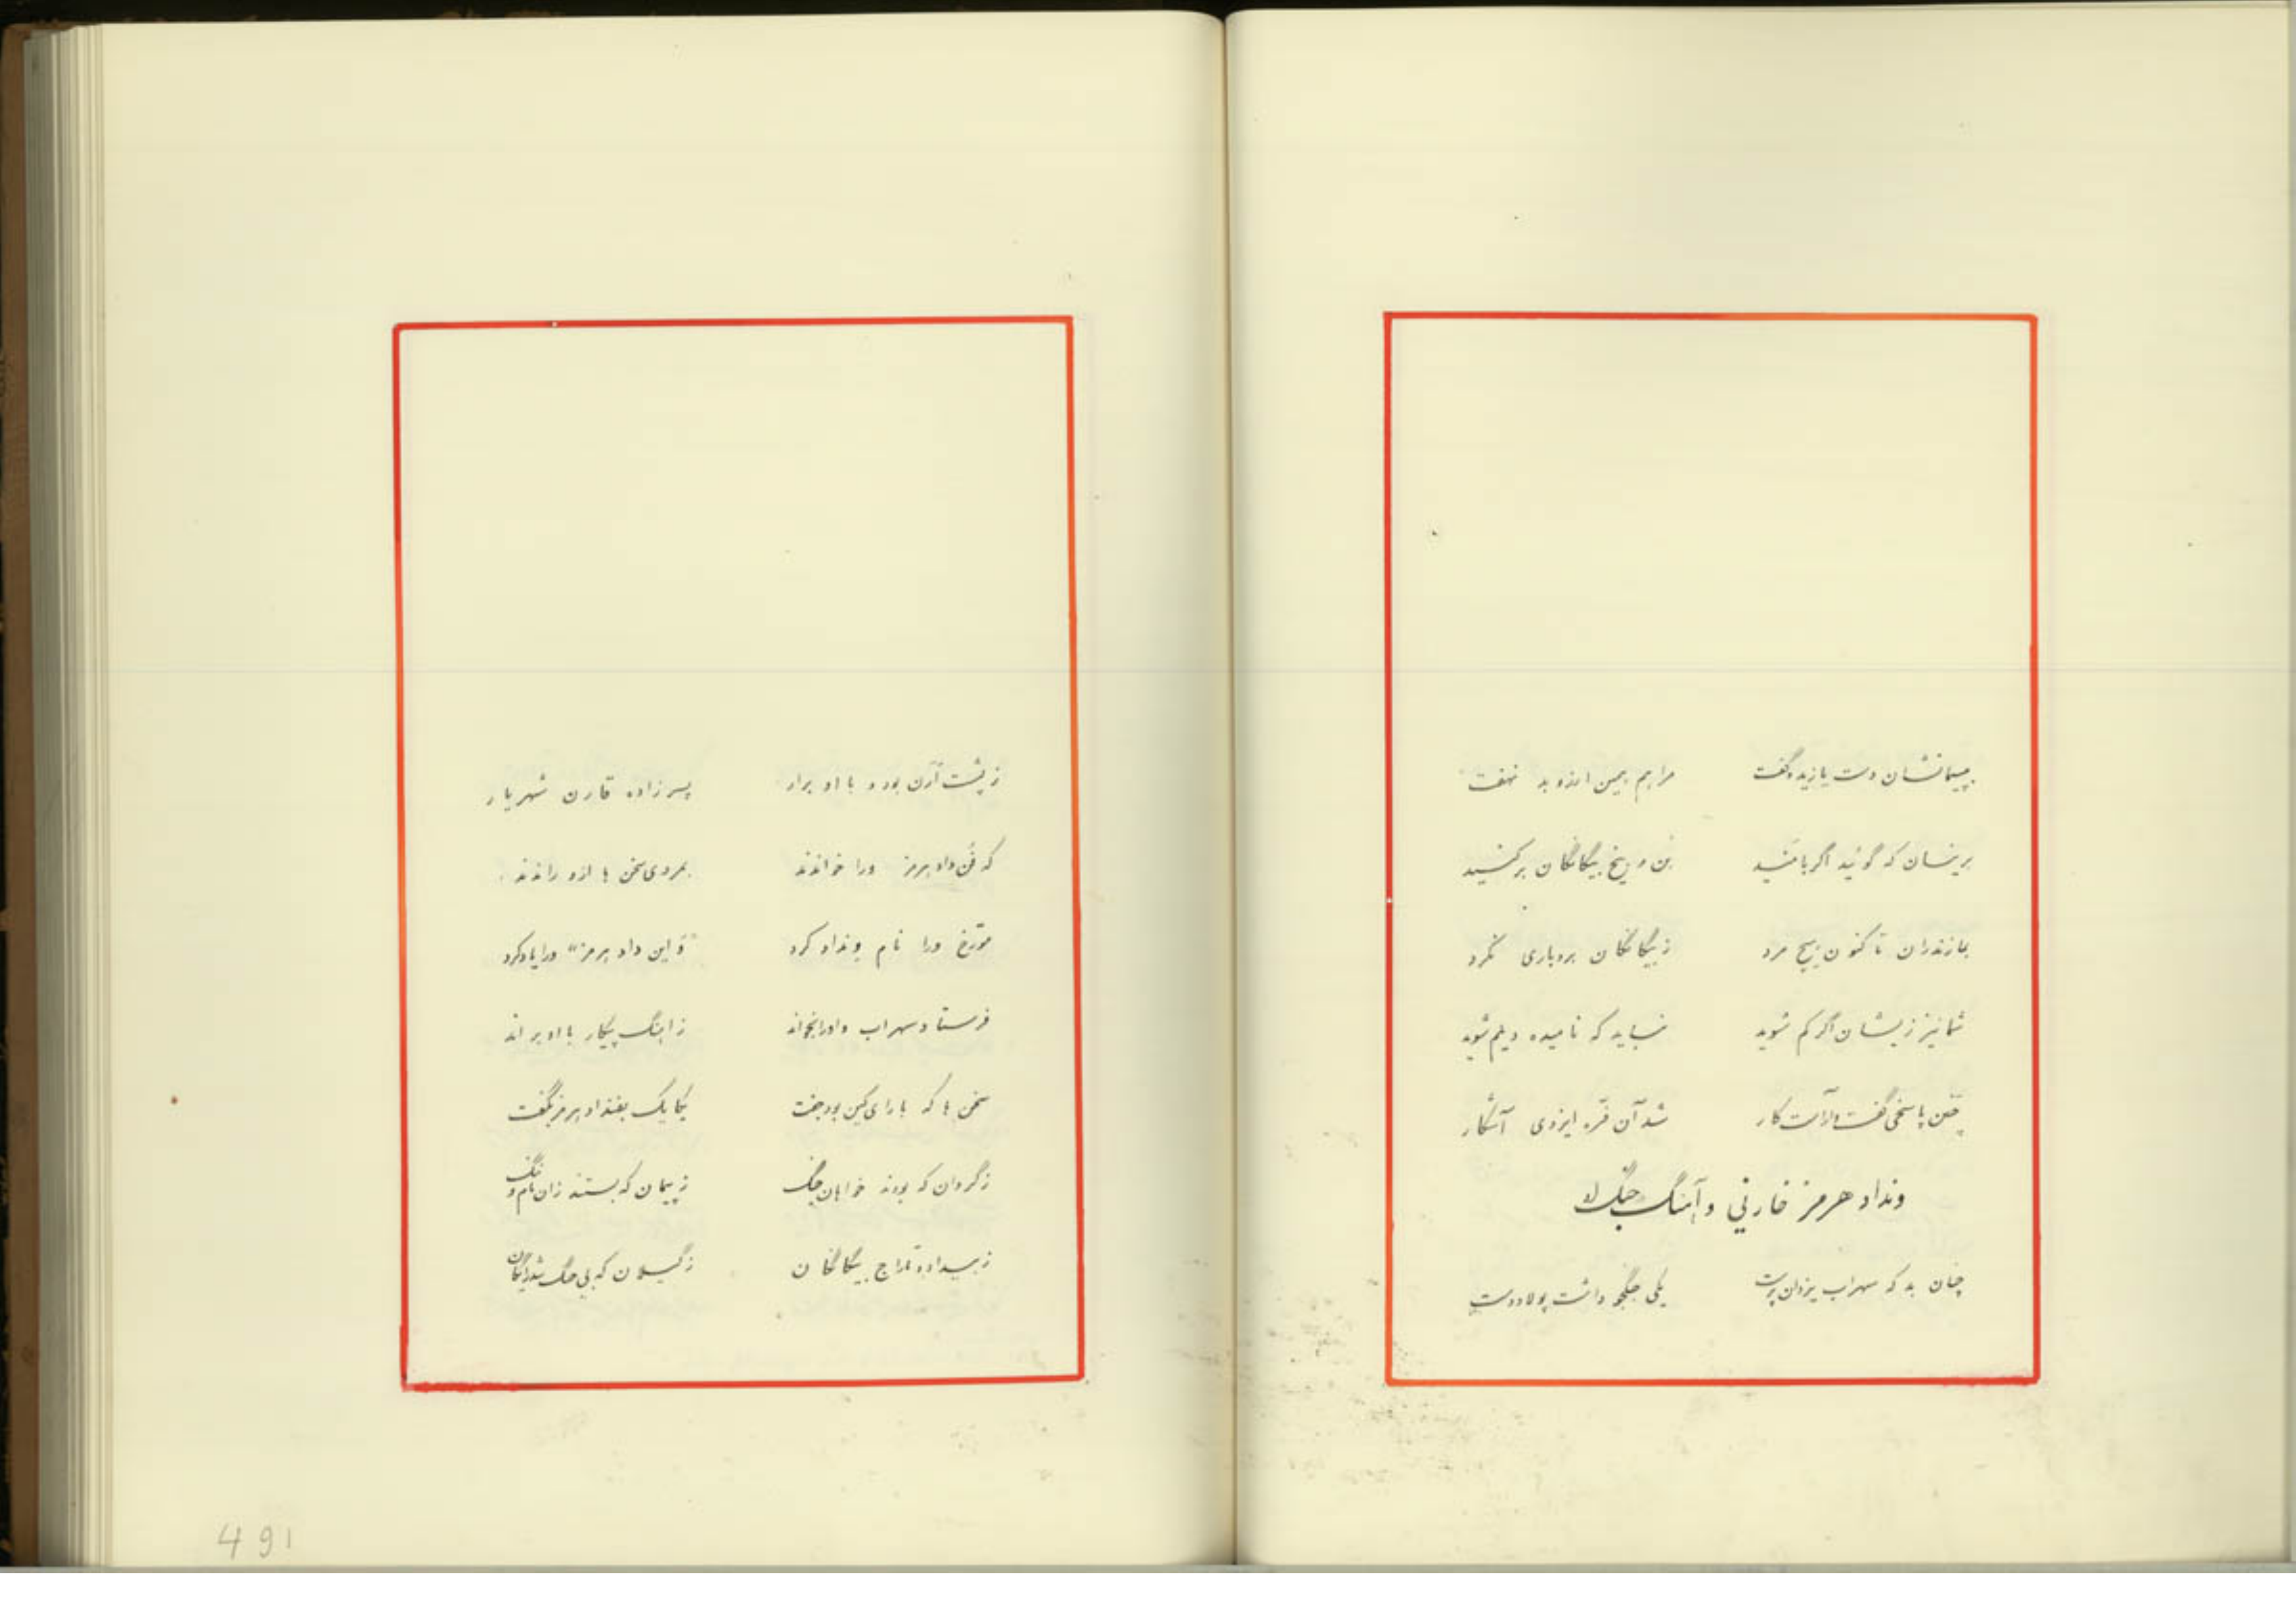 بپیمانشان دست یازید و گفت مرا هم همین ارزو بد نهفت
برینسان که گوئید اگر باشید بن و بیخ بیگانگان برکشید
بمازندران تا کنون هیچ مرد ز بیگانگان بردباری نکرد
شما نیز زیشان اگر کم شوید نباید که نامیده دیلم شوید
چنین پاسخی گفت و آراست کار شد آن فره ایزدی آشکار
ونداد هرمز خارنی و آهنگ جنگ او
چنان بد که سهراب یزدان پرست یکی جنگجو داشت پولاد دست
ز پشت آرن بود و با او برار پسر زاده قارن شهریار
که فن داد هرمز ورا خواندند بمردی سخن ها ازو راندند
مورخ ورا نام ونداد کرد "واین داد هرمز" ورا یاد کرد
فرستاد سهراب و او را بخواند ز اهنگ پیکار با او براند
سخن ها که با رای کین بود جفت یکایک بفنداد هرمز بگفت
ز گردان که بودند خواهان جنگ ز پیمان که بستند زان نام و ننگ
ز بیداد و تاراج بیگانگان ز گیلان که بی جنگ شد رایگان
491